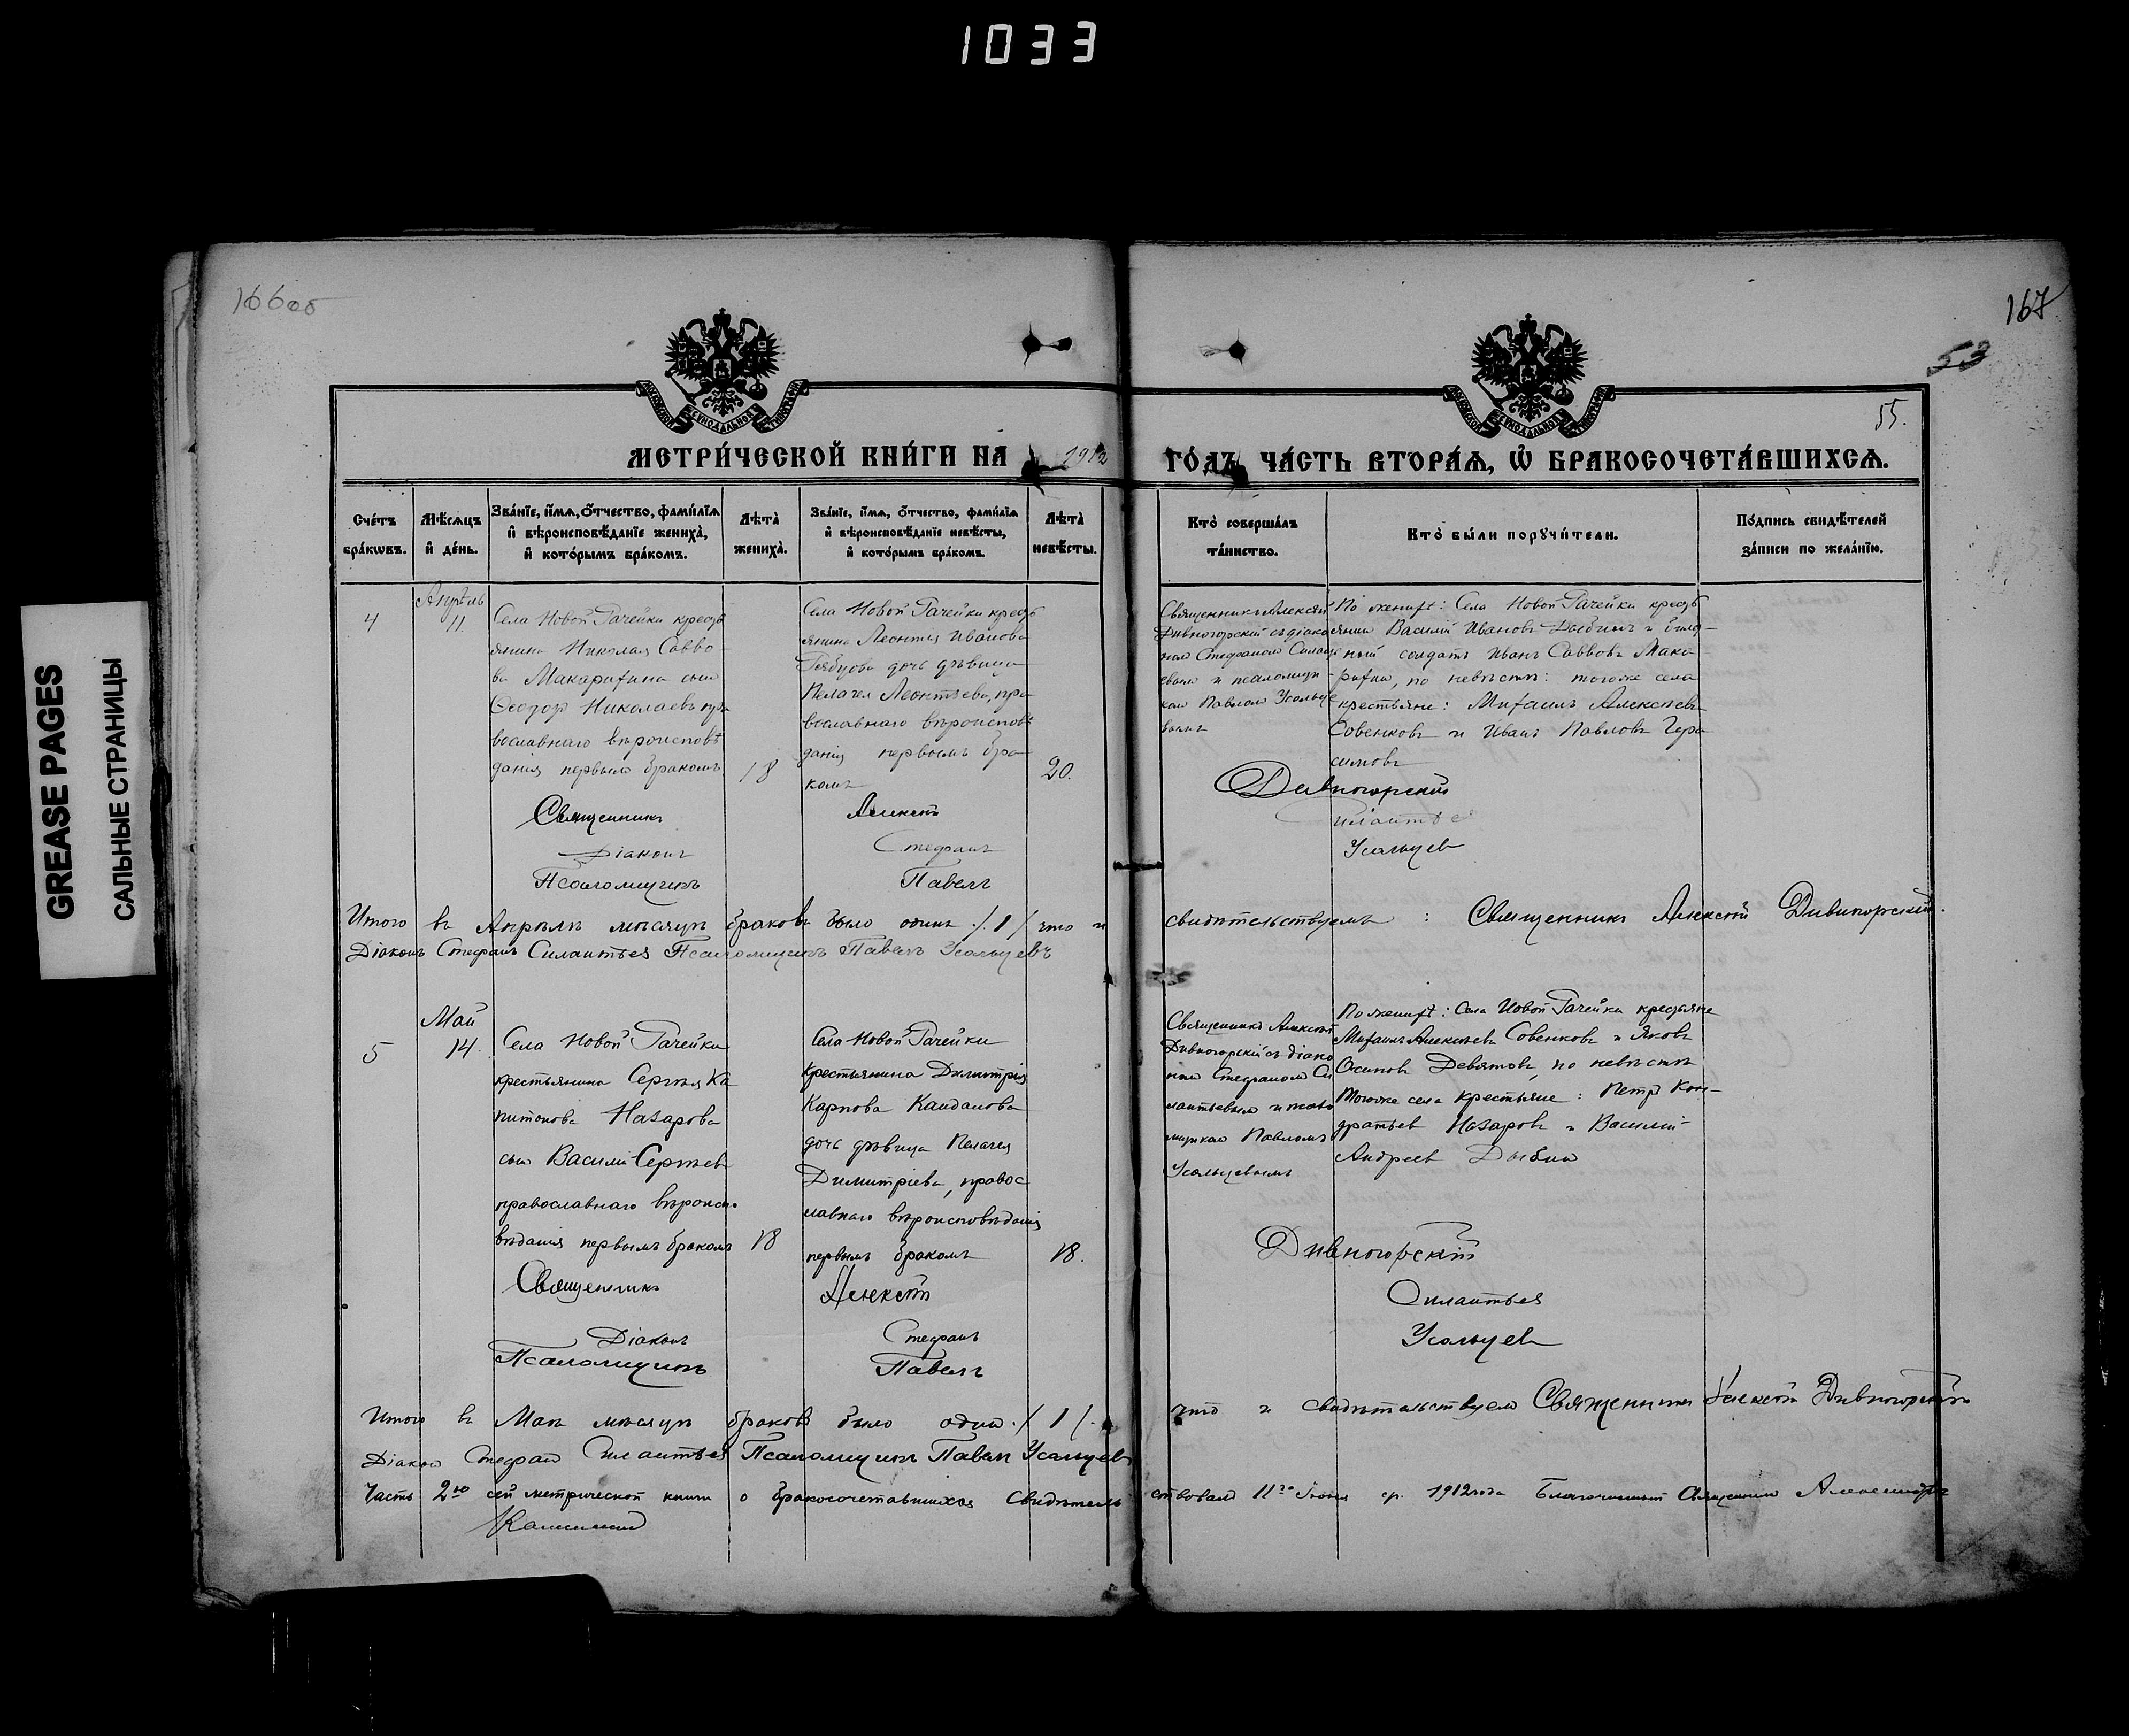 1033
GREASE PAGES
САЛЬНЫЕ СТРАНИЦЫ
166об
167
53
55.
МЕТРИ́ЧЕСКОЙ КНИ́ГИ НА 1912 ГО́ДЪ ЧА́СТЬ ВТОРА́Ѧ, Ѡ҆ БРАКОСОЧЕТА́ВШИХСѦ.
Сче́тъ бра́кѡвъ.
Мѣ́сѧцъ и҆ де́нь.
Зва́нїе, и҆́мѧ, о҆́тчество, фами́лїѧ и҆ вѣроисповѣ́данїе жениха̀, и҆ кото́рымъ бра́комъ.
Лѣ́та̀ жениха̀.
Зва́нїе, и҆́мѧ, о҆́тчество, фами́лїѧ и҆ вѣроисповѣ́данїе невѣ́сты, и҆ кото́рымъ бра́комъ.
Лѣ́та̀ невѣ́сты.
Кто̀ соверша́лъ та́инство.
Кто̀ бы́ли порꙋчи́тели.
По́дпись свидѣ́телей за́писи по жела́нїю.
4
Апрѣль
11
Села Новой Рачейки кресть
янина Николая Савво-
ва Макарихина сын
Ѳеодор Николаевъ пра
вославнаго вѣроисповѣ
данія первымъ бракомъ
18
Села Новой Рачейки кресть
янина Леонтія Иванова
дочь дѣвица
Пелагея Леонтьева, пра
вославнаго вѣроисповѣ
данія первымъ бра-
комъ
20.
Священникъ Алексѣй
Дивногорскій съ діако
номъ Стефаномъ Силанть
евымъ и псаломщи-
комъ Павломъ Усольце
вымъ
По женихѣ: Села Новой Рачейки кресть
янин Василій Ивановъ Дыбинъ и билет-
ный солдатъ Иванъ Саввовъ Мака-
рихин, по невѣстѣ: тогоже села
крестьяне: Михаилъ Алексѣевъ
Совенковъ и Иванъ Павловъ Гера-
симовъ
Священникъ Алексѣй Дивногорскій
Діаконъ Стефанъ Силантьев
Псаломщикъ Павелъ Усольцев
Итого въ Апрѣлѣ мѣсяцѣ браковъ было одинъ /1/ что и свидѣтельствуемъ: Священникъ Алексѣй Дивногорскій.
Діаконъ Стефанъ Силантьев Псаломщикъ Павелъ Усольцевъ
5
Май
14.
Села Новой Рачейки
крестьянина Сергѣя Ка
питонова Назарова
сын Василій Сергѣев
православнаго вѣроиспо
вѣданія первымъ бракомъ
18
Села Новой Рачейки
крестьянина Димитрія
Карпова Кандалова
дочь дѣвица Пелагея
Димитріева, правос
лавнаго вѣроисповѣданія
первымъ бракомъ
18.
Священникъ Алексѣй
Дивногорскій съ діако
номъ Стефаномъ Си
лантьевымъ и псало
мщикомъ Павломъ
Усольцевымъ
По женихѣ: Села Новой Рачейки крестьяне
Михаилъ Алексѣевъ Совенковъ и Яковъ
Осиповъ Девятовъ, по невѣстѣ
тогоже села крестьяне: Петръ Кон-
дратьев Назаровъ и Василій
Андреев Дыбин
Священникъ Алексѣй Дивногорскій
Діаконъ Стефанъ Силантьев
Псаломщикъ Павелъ Усольцев
Итого въ Маѣ мѣсяцѣ браковъ было один /1/. что и свидѣтельствуем Священникъ Алексѣй Дивногорскій
Діакон Стефан Силантьев Псаломщикъ Павел Усольцев
Часть 2ю сей метрической книги о бракосочетавшихся свидѣтель ствовалъ 11го Іюня 1912 года Благочинный Священникъ Александръ